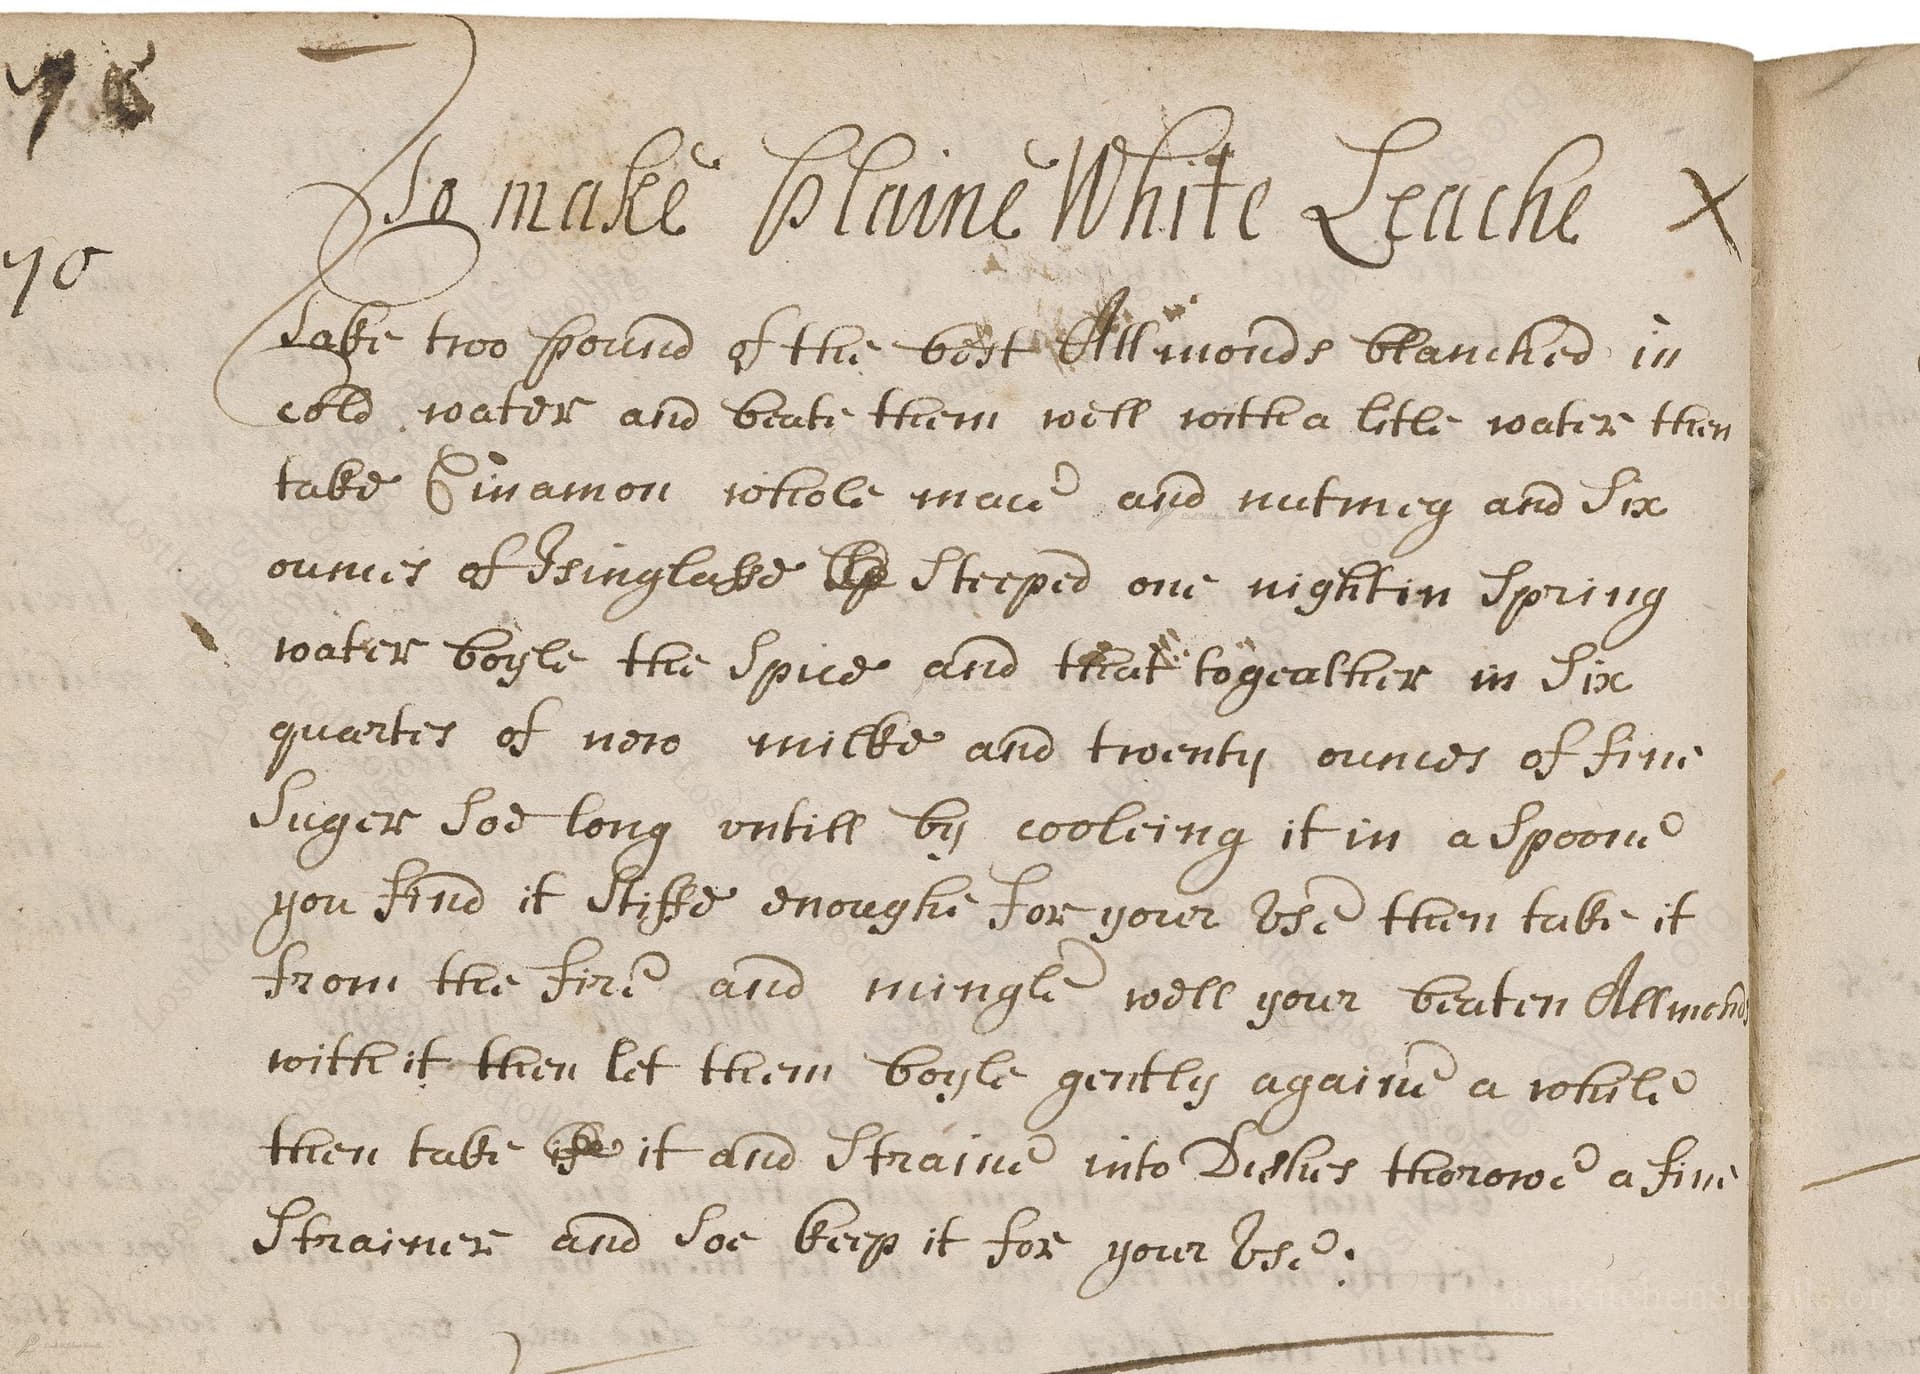 75
To make plaine White Leache X
70
Take two pound of the best Allmonds blanched in
cold water and beate them well with a litle water then
take Cinamon whole mace and nutmeg and six
ounces of Isinglasse steeped one night in spring
water boyle the spice and that togeather in six
quartes of new milke and twenty ounces of fine
suger soe long vntill by cooleing it in a spoone
you find it stiffe enoughe for your vse then take it
from the fire and mingle well your beaten Allmonds
with it then let them boyle gently againe a while
then take it and straine into Dishes thorowe a fine
strainer and soe keep it for your vse: